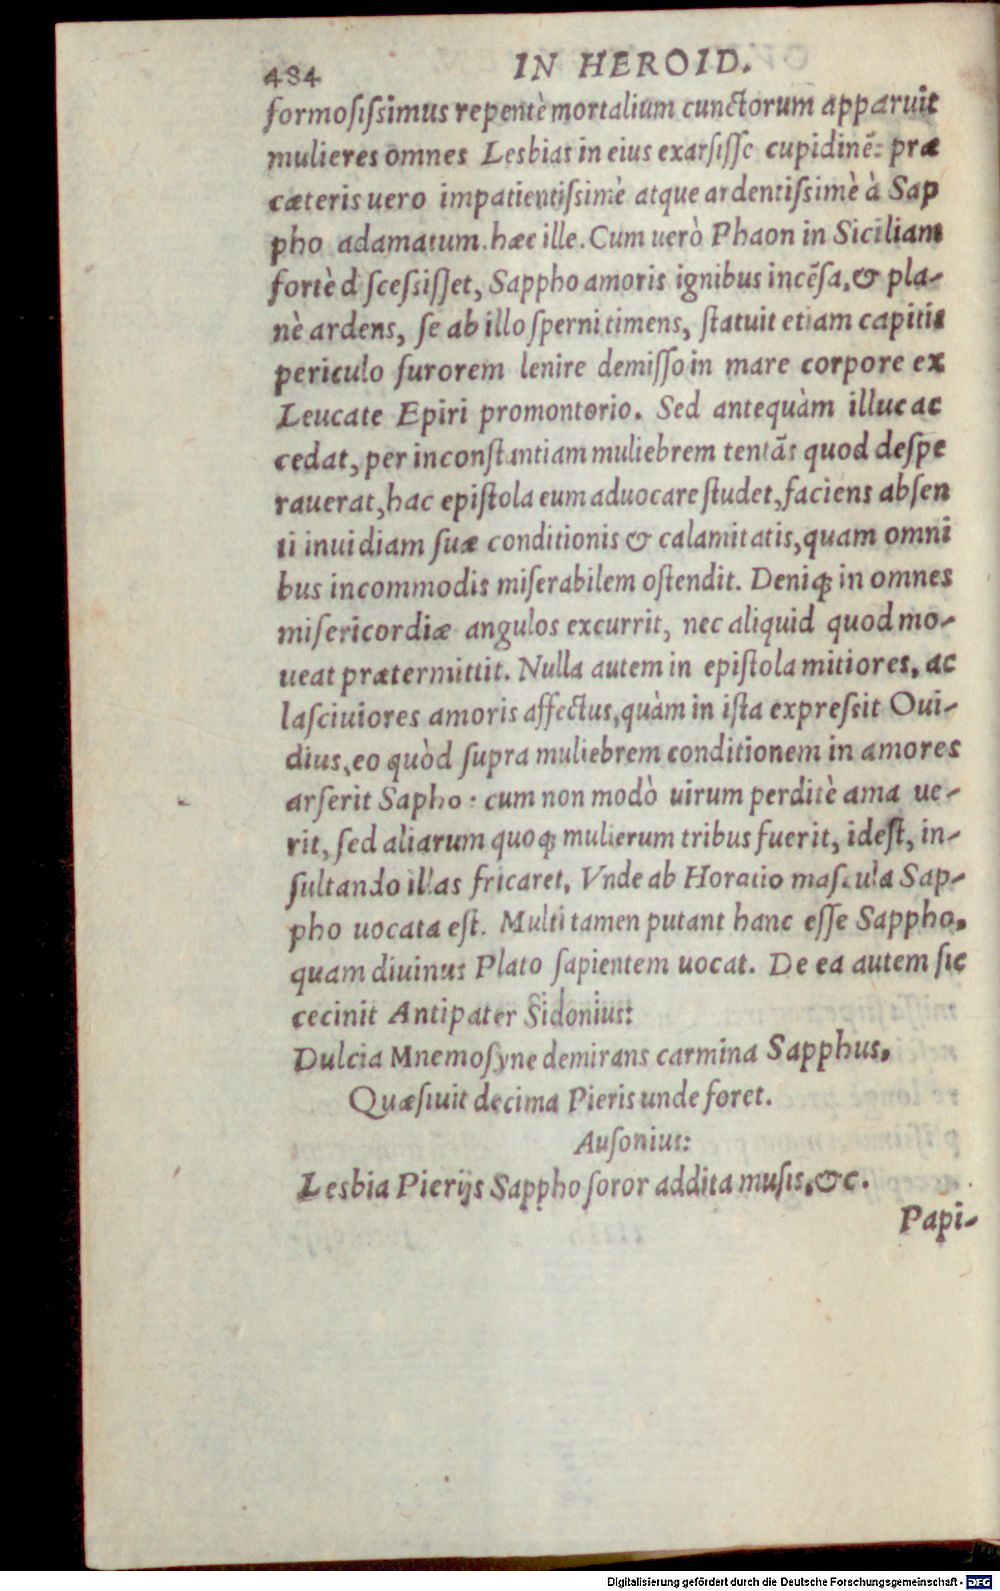 484 IN HEROID.
formosissimus repentè mortalium cunctorum apparuit
mulieres omnes Lesbias in eius exarsisse cupidinē: præ
cæteris uero impatientissimè atque ardentissimè à Sap
pho adamatum. hæc ille. Cum uerò Phaon in Siciliam
fortè discessisset, Sappho amoris ignibus incēsa, & pla-
nè ardens, se ab illo sperni timens, statuit etiam capitis
periculo furorem lenire demisso in mare corpore ex
Leucate Epiri promontorio. Sed antequàm illuc ac
cedat, per inconstantiam muliebrem tentās quod despe
rauerat, hac epistola eum aduocare studet, faciens absen
ti inuidiam suæ conditionis & calamitatis, quam omni
bus incommodis miserabilem ostendit. Deniq; in omnes
misericordiæ angulos excurrit, nec aliquid quod mo-
ueat prætermittit. Nulla autem in epistola mitiores, ac
lasciuiores amoris affectus, quàm in ista expressit Oui-
dius, eo quòd supra muliebrem conditionem in amores
arserit Sapho: cum non modò uirum perditè ama ue-
rit, sed aliarum quoq; mulierum tribus fuerit, idest, in-
sultando illas fricaret, Vnde ab Horatio mascula Sap-
pho uocata est. Multi tamen putant hanc esse Sappho,
quam diuinus Plato sapientem uocat. De ea autem sic
cecinit Antipater Sidonius:
Dulcia Mnemosyne demirans carmina Sapphus,
Quæsiuit decima Pieris unde foret.
Ausonius:
Lesbia Pierijs Sappho soror addita musis, &c.
Papi-
Digitalisierung gefördert durch die Deutsche Forschungsgemeinschaft - DFG